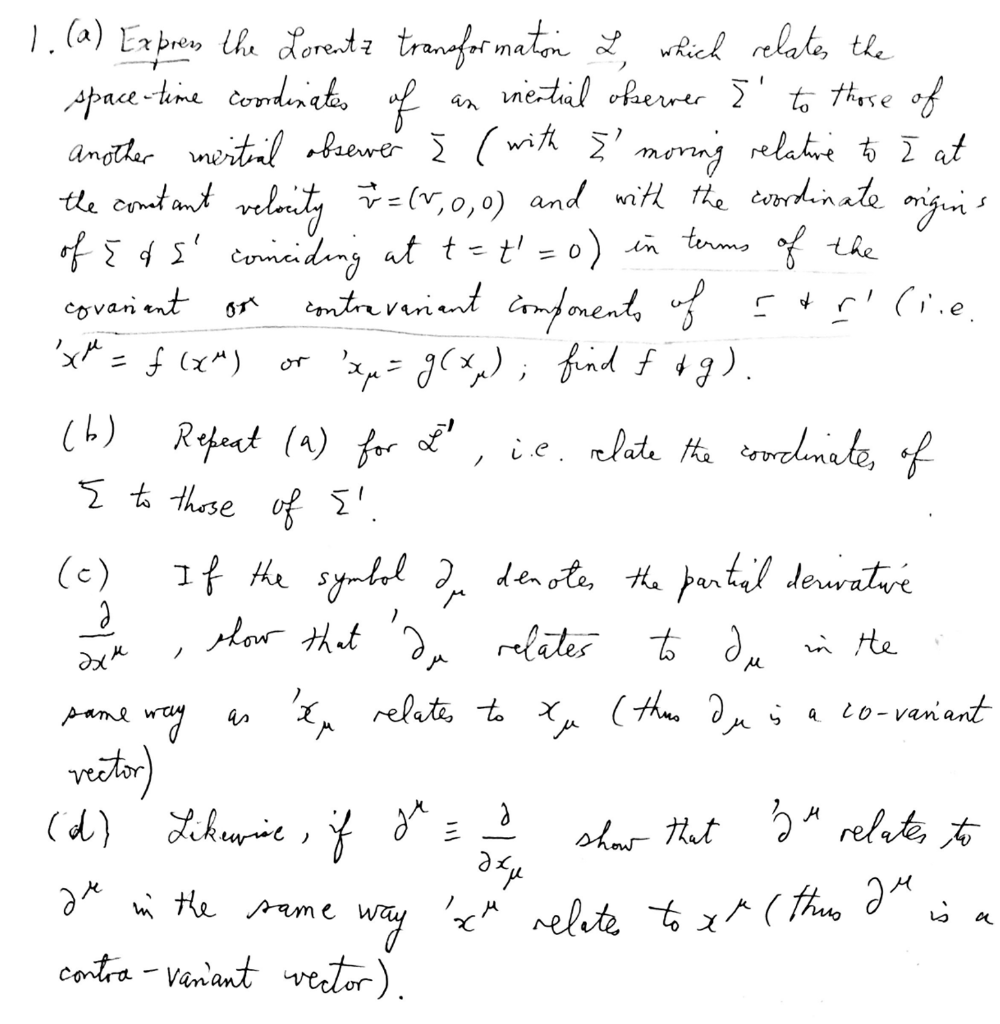 1. (a) Express the Lorentz transformation ℒ, which relates the
space-time coordinates of an inertial observer Σ' to those of
another inertial observer Σ (with Σ' moving relative to Σ at
the constant velocity v⃗ = (v,0,0) and with the coordinate origins
of Σ & Σ' coinciding at t = t' = 0) in terms of the
covariant or contravariant components of r & r' (i.e.
'x^μ = f(x^μ) or 'x_μ = g(x_μ); find f & g).
(b) Repeat (a) for ℒ⁻¹, i.e. relate the coordinates of
Σ to those of Σ'.
(c) If the symbol ∂_μ denotes the partial derivative
∂/∂x^μ, show that '∂_μ relates to ∂_μ in the
same way as 'x_μ relates to x_μ (thus ∂_μ is a co-variant
vector)
(d) Likewise, if ∂^μ ≡ ∂/∂x_μ show that '∂^μ relates to
∂^μ in the same way 'x^μ relates to x^μ (thus ∂^μ is a
contra-variant vector).